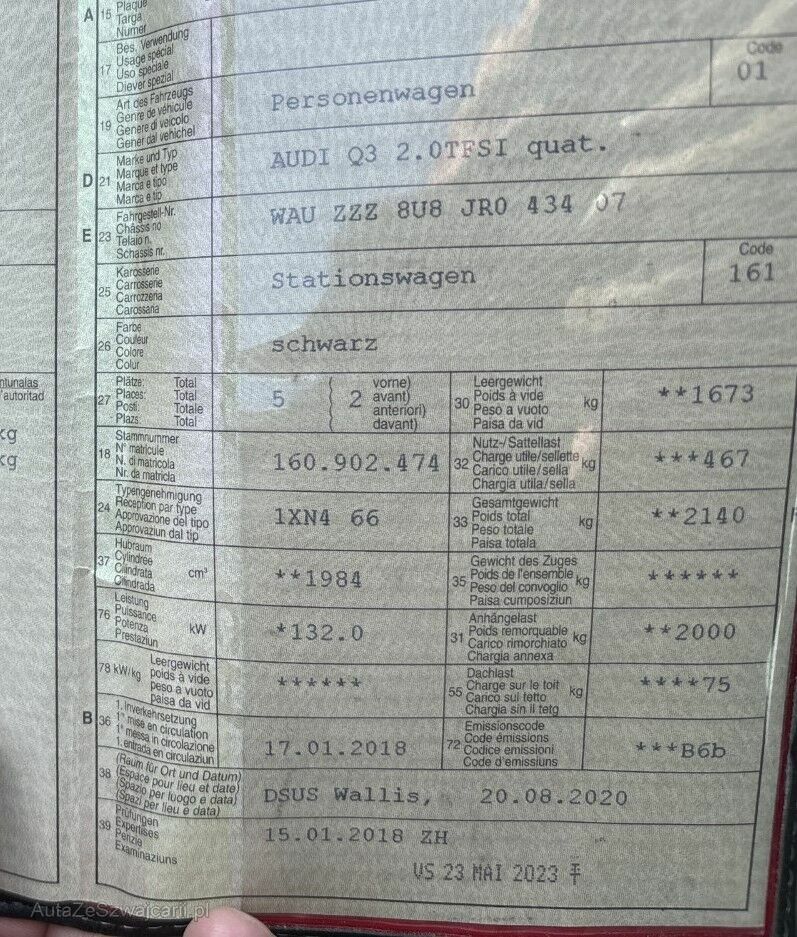 A 15 Plaque
Targa
Numer
17 Bes. Verwendung
Usage spécial
Uso speciale
Diever spezial
Code
01
19 Art des Fahrzeugs
Genre de véhicule
Genere di veicolo
Gener dal vehichel
Personenwagen
D 21 Marke und Typ
Marque et type
Marca e tipo
Marca e tip
AUDI Q3 2.0TFSI quat.
E 23 Fahrgestell-Nr.
Châssis no
Telaio n.
Schassis nr.
WAU ZZZ 8U8 JR0 434 07
25 Karosserie
Carrosserie
Carrozzeria
Carossaria
Stationswagen
Code
161
26 Farbe
Couleur
Colore
Colur
schwarz
27 Plätze: Total
Places: Total
Posti: Totale
Plazs: Total
5
( 2 vorne)
( avant)
( anteriori)
( davant)
30 Leergewicht
Poids à vide
Peso a vuoto
Paisa da vid
kg
**1673
18 Stammnummer
N° matricule
N. di matricola
Nr. da matricla
160.902.474
32 Nutz-/Sattellast
Charge utile/sellette
Carico utile/sella
Chargia utila/sella
kg
***467
24 Typengenehmigung
Réception par type
Approvazione del tipo
Approvaziun dal tip
1XN4 66
33 Gesamtgewicht
Poids total
Peso totale
Paisa totala
kg
**2140
37 Hubraum
Cylindrée
Cilindrata
Cilindrada
cm³
**1984
35 Gewicht des Zuges
Poids de l'ensemble
Peso del convoglio
Paisa cumposiziun
kg
******
76 Leistung
Puissance
Potenza
Prestaziun
kW
*132.0
31 Anhängelast
Poids remorquable
Carico rimorchiato
Chargia annexa
kg
**2000
78 kW/kg Leergewicht
poids à vide
peso a vuoto
paisa da vid
******
55 Dachlast
Charge sur le toit
Carico sul tetto
Chargia sin il tetg
kg
****75
B 36 1. Inverkehrsetzung
1re mise en circulation
1a messa in circolazione
1. entrada en circulaziun
17.01.2018
72 Emissionscode
Code émissions
Codice emissioni
Code d'emissiuns
***B6b
38 (Raum für Ort und Datum)
(Espace pour lieu et date)
(Spazio per luogo e data)
(Spazi per lieu e data)
DSUS Wallis, 20.08.2020
39 Prüfungen
Expertises
Perizie
Examinaziuns
15.01.2018 ZH
VS 23 MAI 2023
ntunalas
'autoritad
kg
kg
AutaZeSzwajcarii.pl